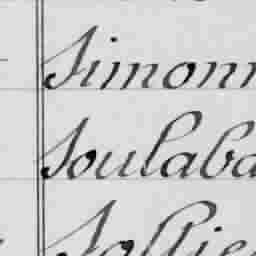 Simonn
Soulaba
Sollie